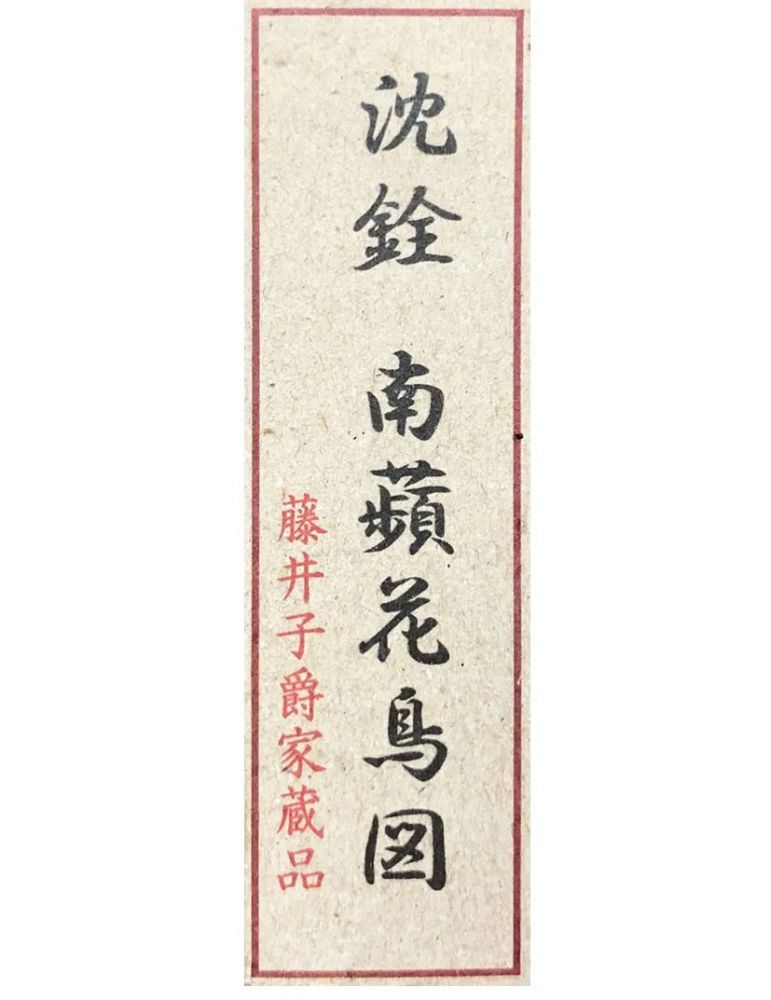 沈銓 南蘋花鳥図
藤井子爵家蔵品